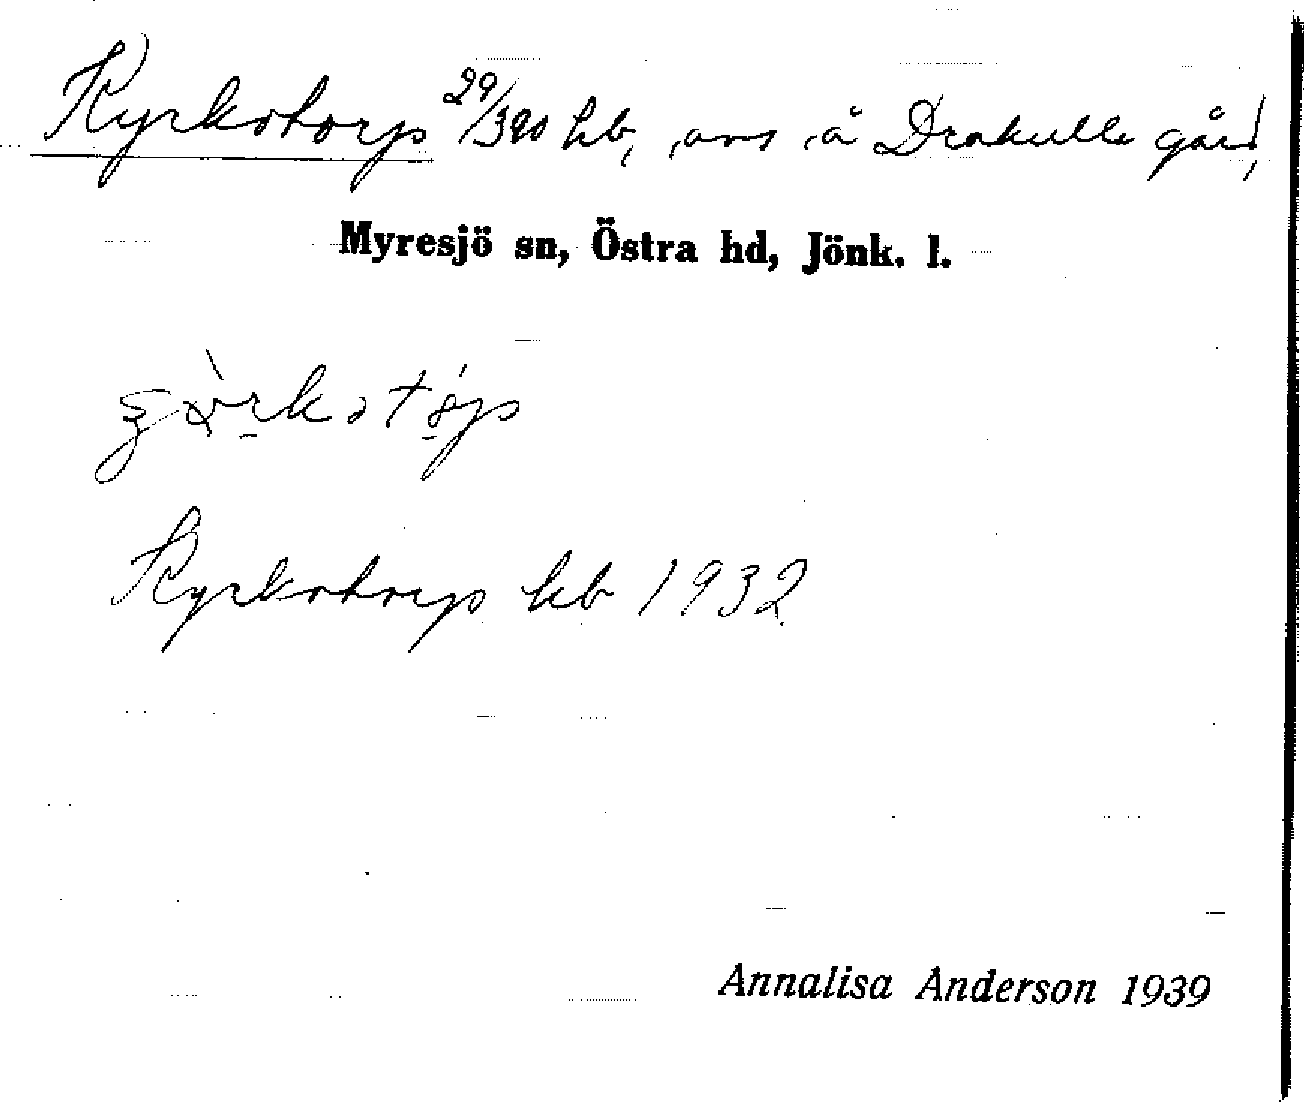 Kyrkotorp 29/390 hb, avs å Drakulle gård,
Myresjö sn, Östra hd, Jönk. l.
Kyrkotorp kb 1932
Annalisa Anderson 1939